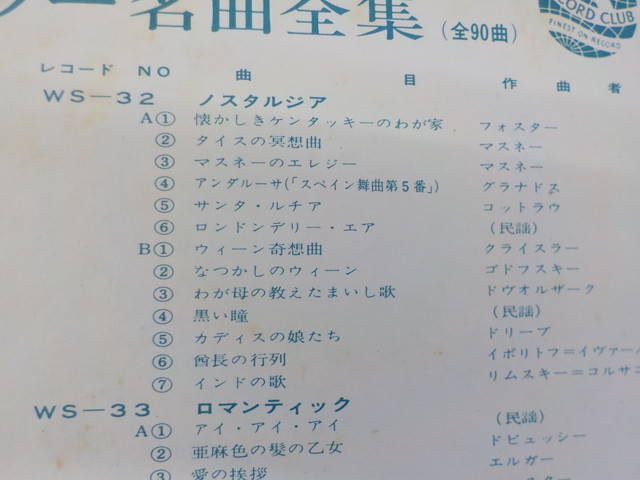 名曲全集 (全90曲)
RECORD CLUB
FINEST ON RECORD
レコード NO 曲目 作曲者
WS-32 ノスタルジア
A① 懐かしきケンタッキーのわが家 フォスター
② タイスの冥想曲 マスネー
③ マスネーのエレジー マスネー
④ アンダルーサ(「スペイン舞曲第5番」) グラナドス
⑤ サンタ・ルチア コットラウ
⑥ ロンドンデリー・エア (民謡)
B① ウィーン奇想曲 クライスラー
② なつかしのウィーン ゴドフスキー
③ わが母の教えたまいし歌 ドヴォルザーク
④ 黒い瞳 (民謡)
⑤ カディスの娘たち ドリーブ
⑥ 酋長の行列 イポリトフ=イヴァー
⑦ インドの歌 リムスキー=コルサ
WS-33 ロマンティック
A① アイ・アイ・アイ (民謡)
② 亜麻色の髪の乙女 ドビュッシー
③ 愛の挨拶 エルガー